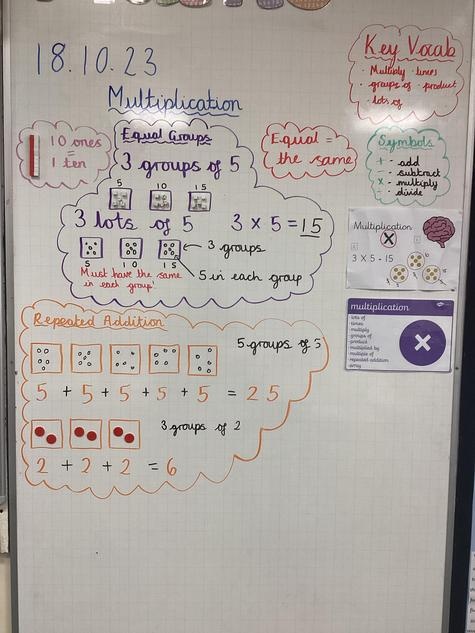 18.10.23
Multiplication
Key Vocab
· Multiply · times
· groups of · product
· lots of
10 ones
=
1 ten
Equal Groups
3 groups of 5
5 10 15
3 lots of 5 3 x 5 = 15
3 groups
5 10 15
5 in each group
Must have the same
in each group!
Equal =
the same
Symbols
+ - add
- - subtract
x - multiply
÷ - divide
Multiplication
X
3 X 5 = 15
multiplication
lots of
times
multiply
groups of
product
multiplied by
multiple of
repeated addition
array
Repeated Addition
5 groups of 5
5 + 5 + 5 + 5 + 5 = 25
3 groups of 2
2 + 2 + 2 = 6